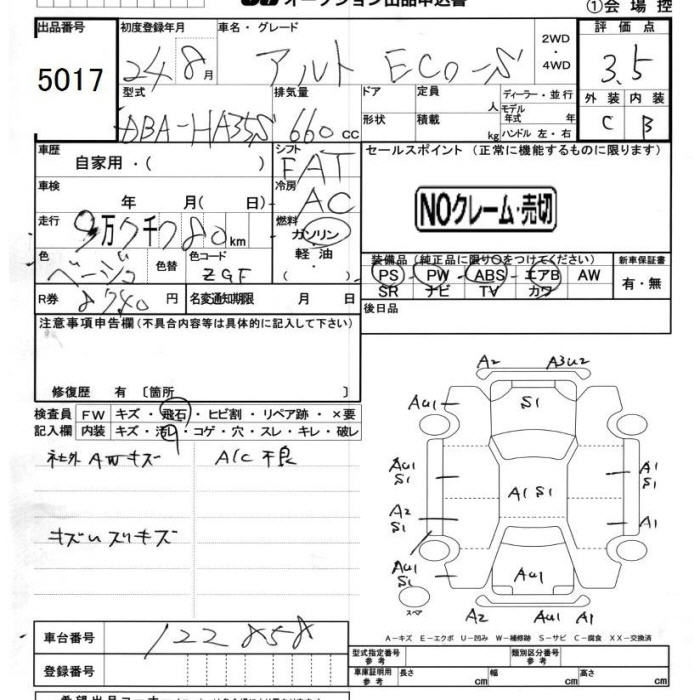 オークション出品申込書
①会場控
出品番号 5017
初度登録年月 24 8月
車名・グレード アルト ECO-S
2WD・4WD
評価点 3.5
外装 C 内装 B
型式 DBA-HA35S
排気量 660cc
ドア 形状
定員 人 積載 kg
ディーラー・並行
モデル年式 年
ハンドル 左・右
車歴 自家用・( )
シフト FAT
セールスポイント (正常に機能するものに限ります)
車検 年 月( 日)
冷房 AC
NOクレーム・売切
走行 9万7千780km
燃料 ガソリン・軽油・( )
色 ベージュ 色替
色コード ZGF
装備品 (純正品に限り○をつけてください)
新車保証書
PS - PW - ABS - エアB AW
SR ナビ TV カワ
有・無
R券 8740円
名変通知期限 月 日
後日品
注意事項申告欄(不具合内容等は具体的に記入して下さい)
修復歴 有〔箇所 〕
検査員 FW キズ・飛石・ヒビ割・リペア跡・×要
記入欄 内装 キズ・汚レ・コゲ・穴・スレ・キレ・破レ
社外AWキズ
A/C不良
キズUスリキズ
A2 A3U2
AU1 S1
AU1 S1 A1 S1
A1 S1
A2 S1 A1
AU1 S1 AU1
スペア
A2 AU1 A1
A-キズ E-エクボ U-凹み W-補修跡 S-サビ C-腐食 XX-交換済
車台番号 122858
型式指定番号 参考
類別区分番号 参考
登録番号
車庫証明用 参考 長さ cm 幅 cm 高さ cm